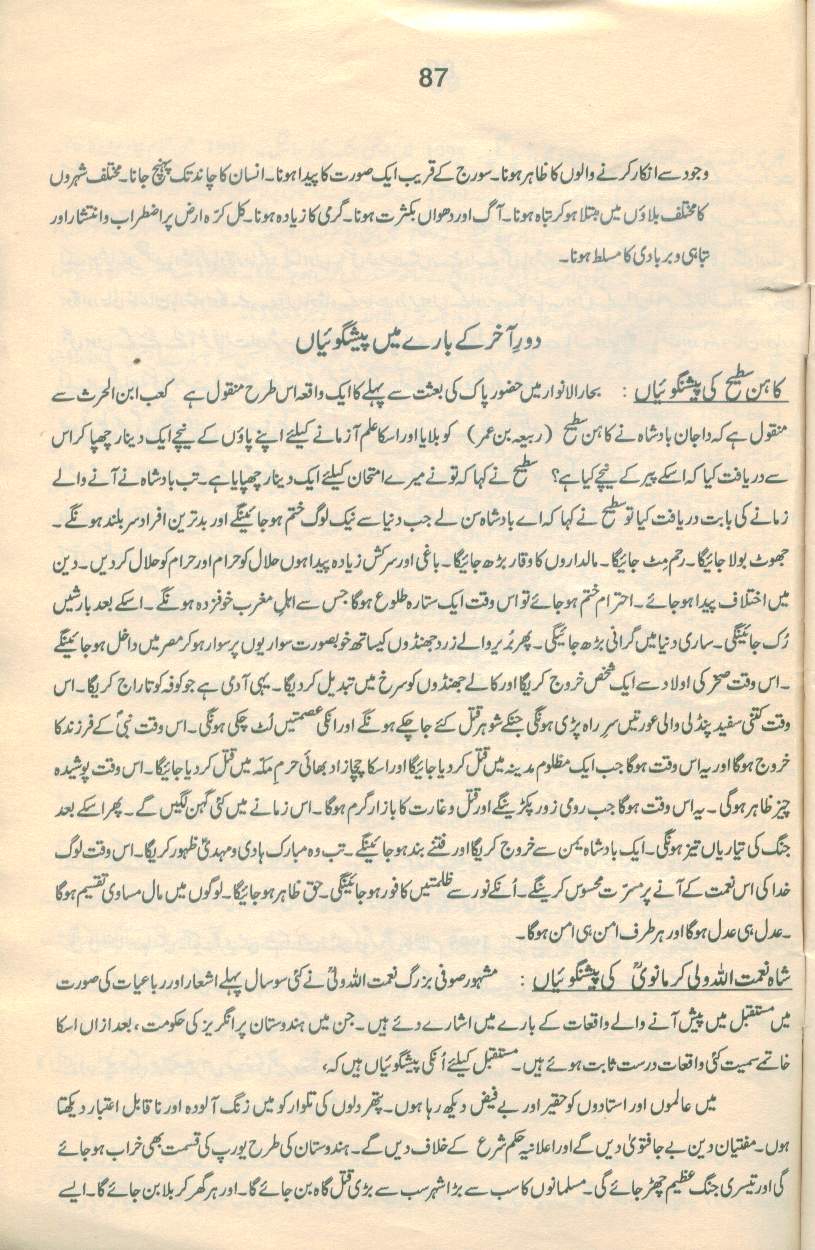 87
وجود سے انکار کرنے والوں کا ظاہر ہونا۔ سورج کے قریب ایک صورت کا پیدا ہونا۔ انسان کا چاند تک پہنچ جانا۔ مختلف شہروں
کا مختلف بلاؤں میں مبتلا ہو کر تباہ ہونا۔ آگ اور دھواں بکثرت ہونا۔ گرمی کا زیادہ ہونا۔ کل کرّہ ارض پر اضطراب و انتشار اور
تباہی و بربادی کا مسلط ہونا۔
دورِ آخر کے بارے میں پیشگوئیاں
کاہن سطیح کی پیشنگوئیاں : بحار الانوار میں حضور پاک کی بعثت سے پہلے کا ایک واقعہ اس طرح منقول ہے کعب ابن الحرث سے
منقول ہے کہ داجان بادشاہ نے کاہن سطیح (ربیعہ بن عمر) کو بلایا اور اسکا علم آزمانے کیلئے اپنے پاؤں کے نیچے ایک دینار چھپا کر اس
سے دریافت کیا کہ اسکے پیر کے نیچے کیا ہے؟ سطیح نے کہا کہ تو نے میرے امتحان کیلئے ایک دینار چھپایا ہے۔ تب بادشاہ نے آنے والے
زمانے کی بابت دریافت کیا تو سطیح نے کہا کہ اے بادشاہ سن لے جب دنیا سے نیک لوگ ختم ہو جائینگے اور بدترین افراد سر بلند ہونگے۔
جھوٹ بولا جائیگا۔ رحم مِٹ جائیگا۔ مالداروں کا وقار بڑھ جائیگا۔ باغی اور سرکش زیادہ پیدا ہوں حلال کو حرام اور حرام کو حلال کر دیں۔ دین
میں اختلاف پیدا ہو جائے۔ احترام ختم ہو جائے تو اس وقت ایک ستارہ طلوع ہوگا جس سے اہلِ مغرب خوفزدہ ہونگے۔ اسکے بعد بارشیں
رُک جائینگی۔ ساری دنیا میں گرانی بڑھ جائیگی۔ پھر بَربَر والے زرد جھنڈوں کیساتھ خوبصورت سواریوں پر سوار ہو کر مصر میں داخل ہو جائینگے
۔ اس وقت صخر کی اولاد سے ایک شخص خروج کریگا اور کالے جھنڈوں کو سرخ میں تبدیل کر دیگا۔ یہی آدمی ہے جو کوفہ کو تاراج کریگا۔ اس
وقت کتنی سفید پنڈلی والی عورتیں سرِ راہ پڑی ہونگی جنکے شوہر قتل کئے جا چکے ہونگے اور انکی عصمتیں لٹ چکی ہونگی۔ اس وقت نبیؐ کے فرزند کا
خروج ہوگا اور یہ اس وقت ہوگا جب ایک مظلوم مدینہ میں قتل کر دیا جائیگا اور اسکا چچازاد بھائی حرمِ مکّہ میں قتل کر دیا جائیگا۔ اس وقت پوشیدہ
چیز ظاہر ہوگی۔ یہ اس وقت ہوگا جب رومی زور پکڑینگے اور قتل و غارت کا بازار گرم ہوگا۔ اس زمانے میں کئی گہن لگیں گے۔ پھر اسکے بعد
جنگ کی تیاریاں تیز ہونگی۔ ایک بادشاہ یمن سے خروج کریگا اور فتنے بند ہو جائینگے۔ تب وہ مبارک ہادی و مہدیؑ ظہور کریگا۔ اس وقت لوگ
خدا کی اس نعمت کے آنے پر مسرّت محسوس کرینگے۔ اُنکے نور سے ظلمتیں کافور ہو جائینگی۔ حق ظاہر ہو جائیگا۔ لوگوں میں مال مساوی تقسیم ہوگا
۔ عدل ہی عدل ہوگا اور ہر طرف امن ہی امن ہوگا۔
شاہ نعمت اللہ ولی کرمانویؒ کی پیشنگوئیاں : مشہور صوفی بزرگ نعمت اللہ ولیؒ نے کئی سو سال پہلے اشعار اور رباعیات کی صورت
میں مستقبل میں پیش آنے والے واقعات کے بارے میں اشارے دئے ہیں۔ جن میں ہندوستان پر انگریز کی حکومت، بعد ازاں اسکا
خاتمے سمیت کئی واقعات درست ثابت ہوئے ہیں۔ مستقبل کیلئے اُنکی پیشگوئیاں ہیں کہ،
میں عالموں اور استادوں کو حقیر اور بے فیض دیکھ رہا ہوں۔ پتھر دلوں کی تلوار کو میں زنگ آلودہ اور ناقابل اعتبار دیکھتا
ہوں۔ مفتیان دین بے جا فتویٰ دیں گے اور اعلانیہ حکم شرع کے خلاف دیں گے۔ ہندوستان کی طرح یورپ کی قسمت بھی خراب ہو جائے
گی اور تیسری جنگ عظیم چھڑ جائے گی۔ مسلمانوں کا سب سے بڑا شہر سب سے بڑی قتل گاہ بن جائے گا۔ اور ہر گھر کربلا بن جائے گا۔ ایسے